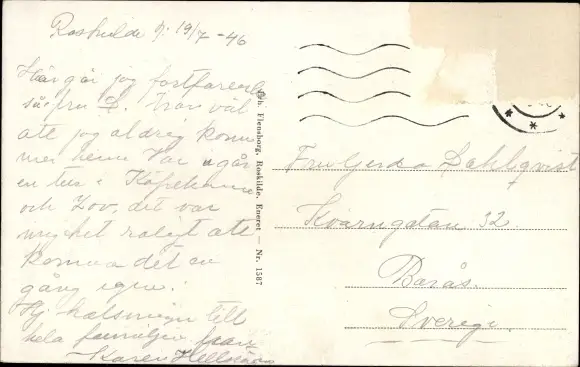 Roskilde d. 19/7-46
Här går jag fortfarande
så fru D. tror väl
att jag aldrig kom
mer hem Var i går
en tur i
och Lov, det var
mycket roligt att
komma dit en
gång igen.
Hj hälsningar till
hela familjen från
Karen
Eneb. Flensborg, Roskilde. Eneret — Nr. 1587
Fru Gerda Dahlqvist
Kvarngatan 32
Borås.
Sverige.